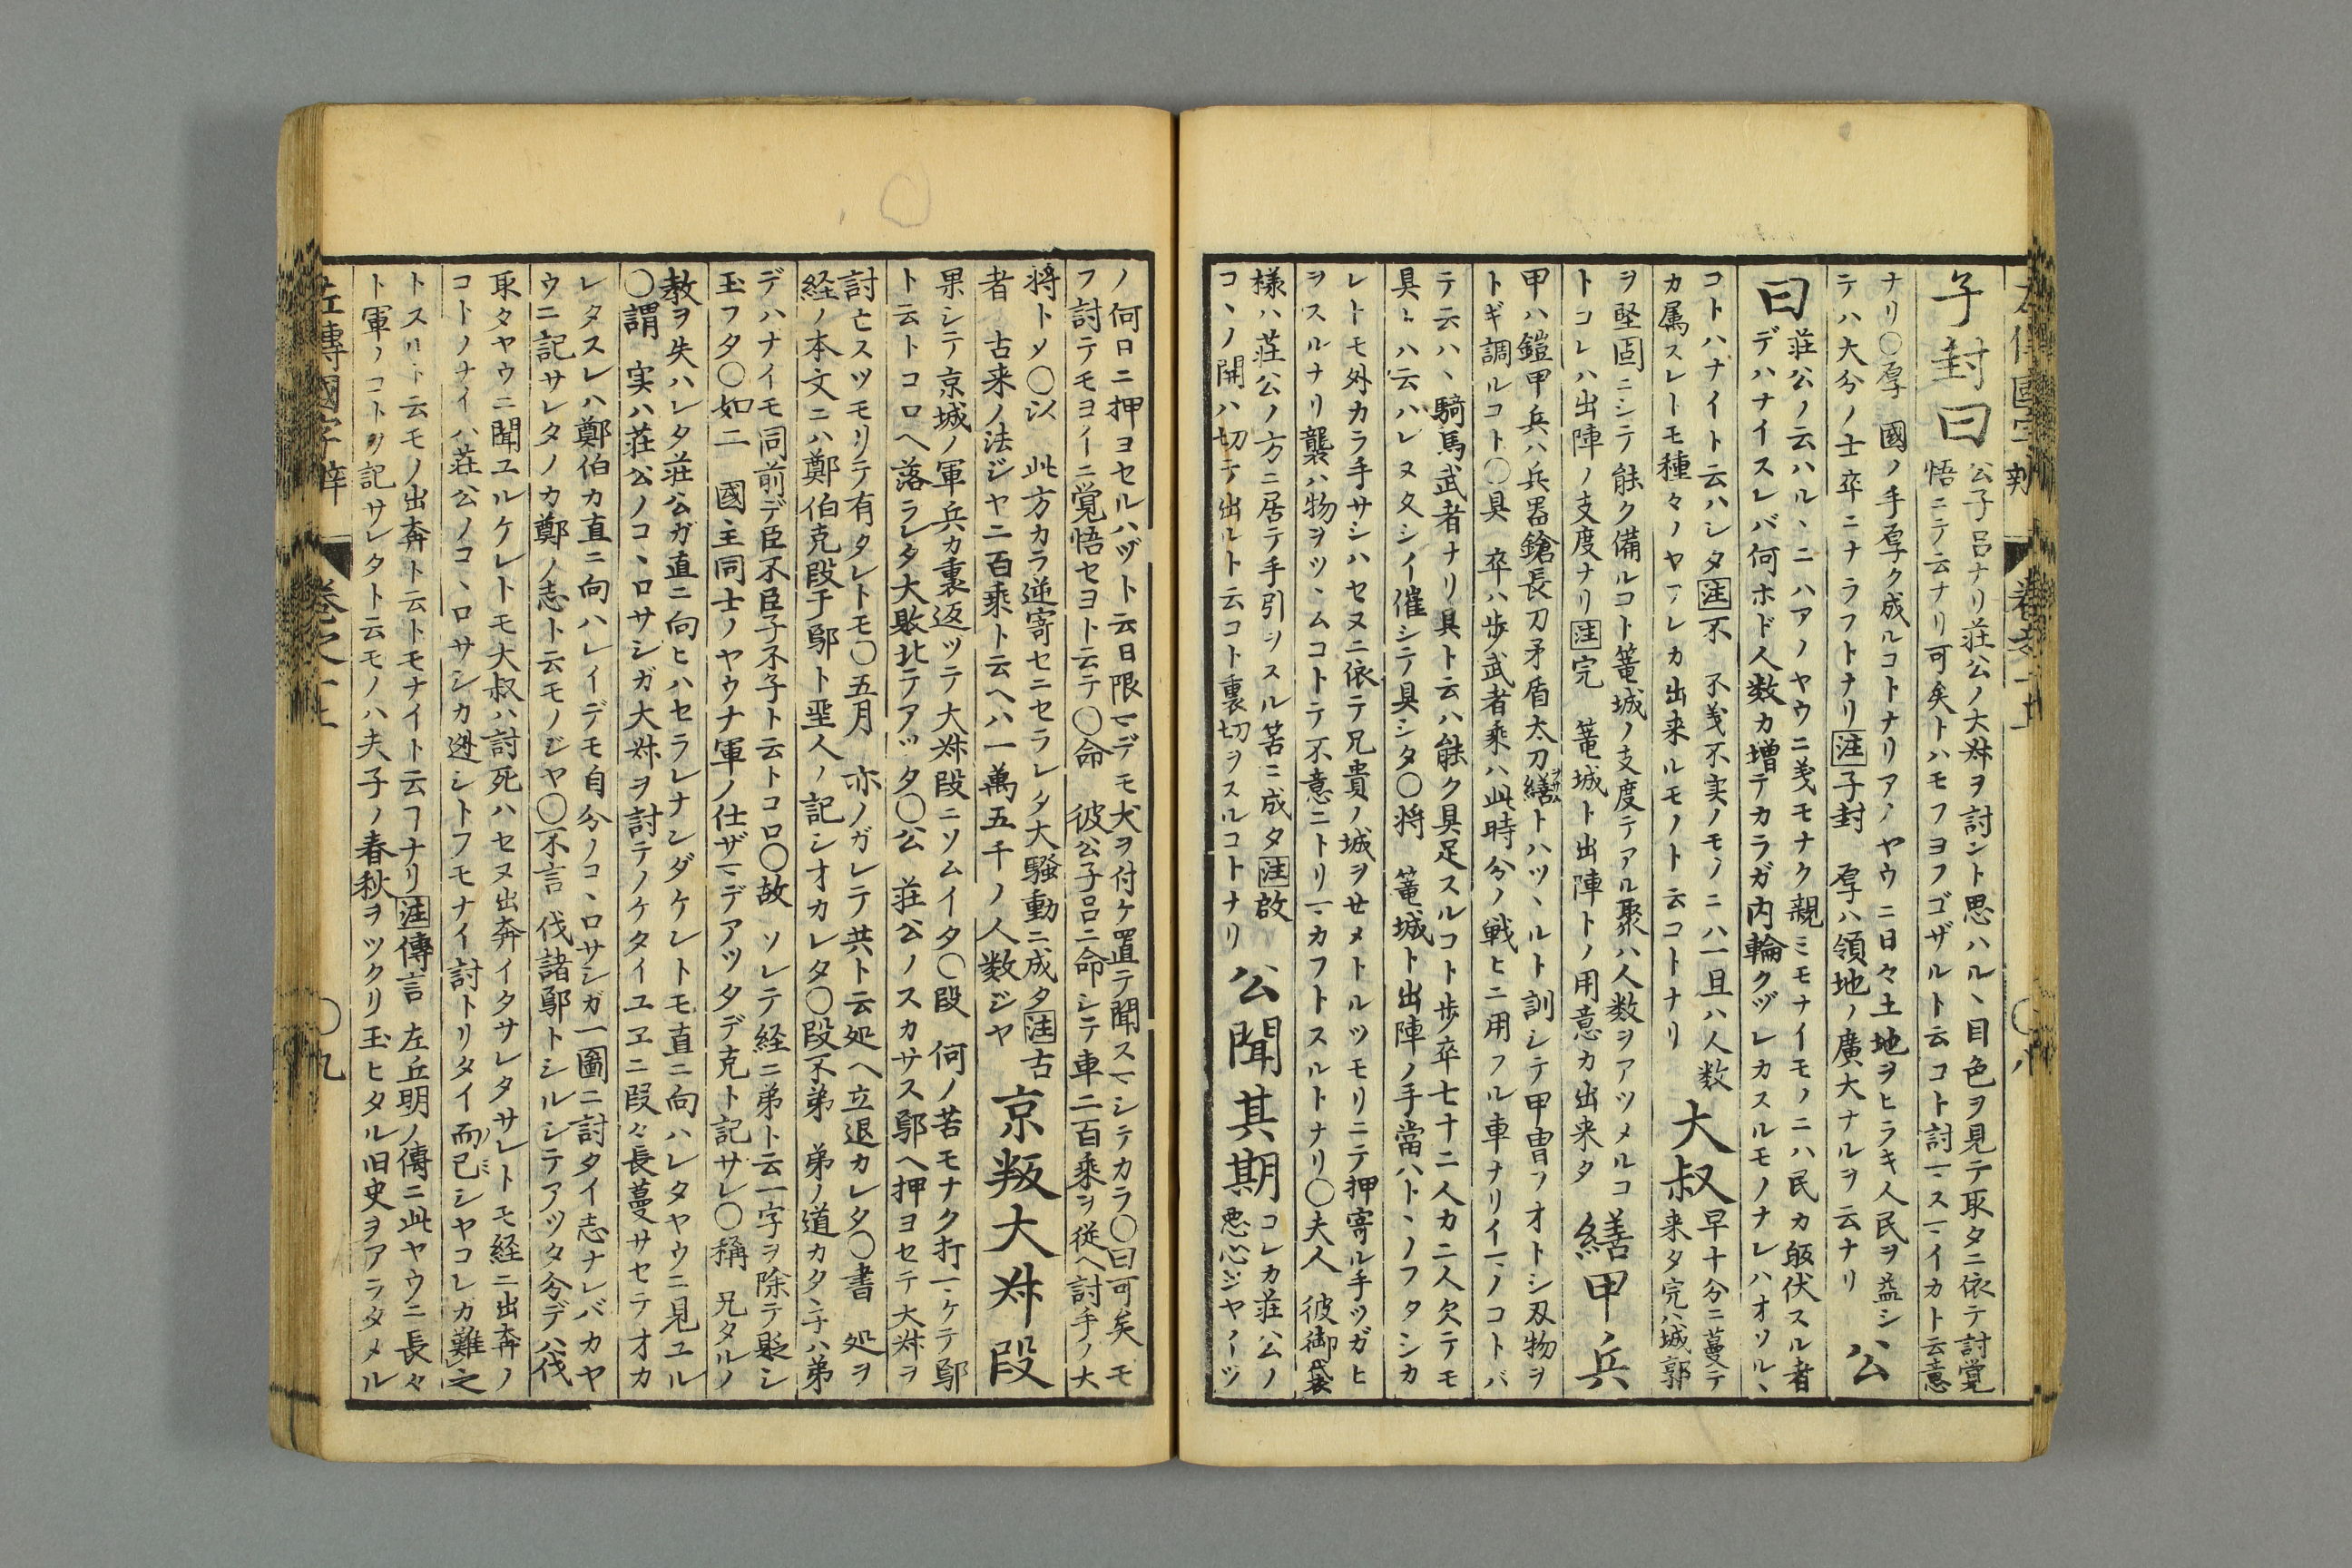 子封曰
公子呂ナリ荘公ノ大叔ヲ討ント思ハル丶目色ヲ見テ取タニ依テ討覚
悟ニテ云ナリ可矣トハモフヨフゴザルト云コト討
イカト云意
ナリ〇厚 國ノ手厚ク成ルコトナリアノヤウニ日々土地ヲヒラキ人民ヲ益シ
テハ大分ノ士卒ニナラフトナリ注子封 厚ハ領地ノ廣大ナルヲ云ナリ
公
曰
荘公ノ云ハル丶ニハアノヤウニ義モナク親ミモナイモノニハ民カ皈伏スル者
デハナイスレバ何ホド人数カ増テカラガ内輪クヅレカスルモノナレハオソル丶
コトハナイト云ハレタ注不 不義不実ノモノニハ一旦ハ人数
カ属スレトモ種々ノヤ
レカ出来ルモノト云コトナリ
大叔
早十分ニ蔓テ
来タ完ハ城郭
ヲ堅固ニシテ能ク備ルコト篭城ノ支度テアル聚ハ人数ヲアツメルコ
トコレハ出陣ノ支度ナリ注完 篭城ト出陣トノ用意カ出来タ
繕甲ノ兵
甲ハ鎧甲兵ハ兵器鎗長刀矛盾太刀繕トハツ丶ルト訓シテ甲冑ノオトシ刃物ヲ
トギ調ルコト〇具 卒ハ歩武者乗ハ此時分ノ戦ヒニ用フル車ナリ
ノコトバ
テ云ハ丶騎馬武者ナリ具ト云ハ能ク具足スルコト歩卒七十二人カ二人欠テモ
具ハ云ハレヌタシイ催シテ具シタ〇将 篭城ト出陣ノ手當ハト丶ノフタシカ
レトモ外カラ手サシハセヌニ依テ兄貴ノ城ヲせメトルツモリニテ押寄ル手ツガヒ
ヲスルナリ襲ハ物ヲツ丶ムコトテ不意ニトリ
カフトスルトナリ〇夫人 彼御袋
様ハ荘公ノ方ニ居テ手引ヲスル筈ニ成タ注啟
コ丶ノ開ハ切テ出ルト云コト裏切ヲスルコトナリ
公聞其期
コレカ荘公ノ
悪心ジヤ
ノ何日ニ押ヨセルハヅト云日限
デモ犬ヲ付ケ置テ聞ス
シテカラ〇曰可矣 モ
フ討テモヨイニ覚悟セヨト云テ〇命 彼公子呂ニ命シテ車二百乗ヲ従ヘ討手ノ大
将トソ〇以 此方カラ逆寄セニセラレタ大騒動ニ成タ注古
者 古来ノ法ジヤニ百乗ト云ヘハ一萬五千ノ人数ジヤ
京叛大叔段
果シテ京城ノ軍兵カ裏返ツテ大叔段ニソムイタ〇段 何ノ苦モナク打
ケテ鄢
ト云トコロヘ落ラレタ大敗北テアツタ〇公 荘公ノスカサス鄢ヘ押ヨセテ大叔ヲ
討亡スツモリテ有タレトモ〇五月 亦ノガレテ共ト云処ヘ立退カレタ〇書 処ヲ
経ノ本文ニハ鄭伯克段于鄢ト聖人ノ記シオカレタ〇段不弟 弟ノ道カタ丶子ハ弟
デハナイモ同前デ臣不臣子不子ト云トコロ〇故 ソレテ経ニ弟ト云一字ヲ除テ貶シ
玉フタ〇如二 國主同士ノヤウナ軍ノ仕ザマデアツタデ克ト記サレ〇稱 兄タルノ
教ヲ失ハレタ荘公ガ直ニ向ヒハセラレナンダケレトモ直ニ向ハレタヤウニ見ユル
〇謂 実ハ荘公ノコ丶ロサシガ大叔ヲ討テノケタイユヱニ段々長蔓サセテオカ
レタスレハ鄭伯カ直ニ向ハレイデモ自分ノコ丶ロサシガ一圖ニ討タイ志ナレバカヤ
ウニ記サレタノカ鄭ノ志ト云モノジヤ〇不言 伐諸鄢トシルシテアツタ分デハ伐
取タヤウニ聞ユルケレトモ大叔ハ討死ハセヌ出奔イタサレタサレトモ経ニ出奔ノ
コトノナイハ荘公ノコ丶ロサシカ逃シトフモナイ討トリタイ而已シヤコレカ難之
トスルト云モノ出奔ト云トモナイト云フナリ注傳言 左丘明ノ傳ニ此ヤウニ長々
ト軍ノコトヲ記サレタト云モノハ夫子ノ春秋ヲツクリ玉ヒタル旧史ヲアラタメル
左傳國字辯
巻之一上
〇九